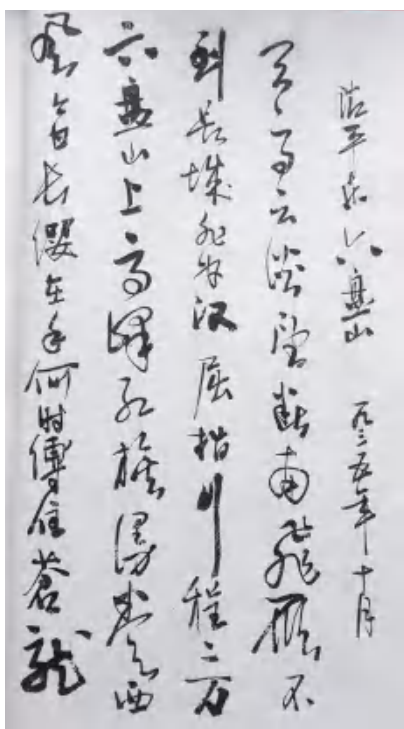 清平乐 六盘山 一九三五年十月
天高云淡望断南飞雁不
到长城非好汉屈指行程二万
六盘山上高峰红旗漫卷西
风今日长缨在手何时缚住苍龙